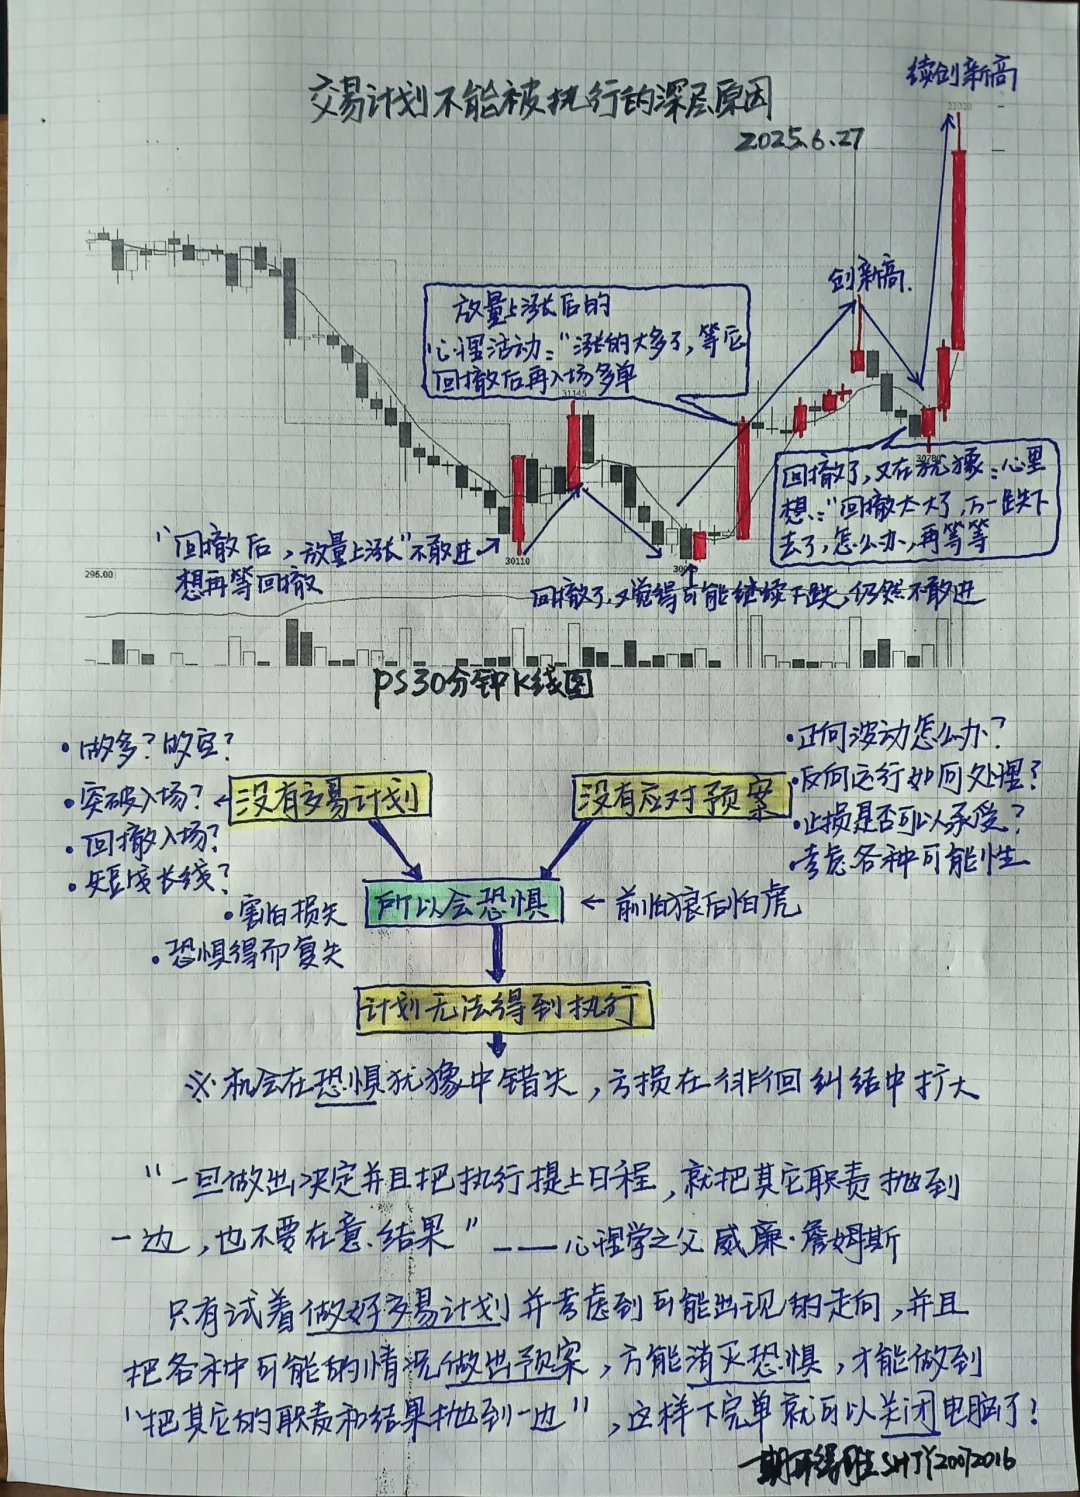 续创新高
交易计划不能被执行的深层原因
2025.6.27
创新高.
放量上涨后的
心理活动:“涨的太多了,等后
回撤后再入场多单
31145
回撤了,又在犹豫:心里
想:“回撤太大了,万一跌下
去了,怎么办,再等等
30780
“回撤后,放量上涨”不敢进
想再等回撤
30110
回撤了,又觉得可能继续下跌,仍然不敢进
296.00
PS30分钟K线图
·做多?做空?
·突破入场?
·回撤入场?
·短或长线?
没有交易计划
没有应对预案
·正向波动怎么办?
·反向运行如何处理?
·止损是否可以承受?
·考虑各种可能性
·害怕损失
·恐惧得而复失
所以会恐惧
←前怕狼后怕虎
计划无法得到执行
※机会在恐惧犹豫中错失,亏损在徘徊纠结中扩大
“一旦做出决定并且把执行提上日程,就把其它职责抛到
一边,也不要在意结果”——心理学之父 威廉·詹姆斯
只有试着做好交易计划并考虑到可能出现的走向,并且
把各种可能的情况做出预案,方能消灭恐惧,才能做到
“把其它的职责和结果抛到一边”,这样下完单就可以关闭电脑了!
SHJY20072016